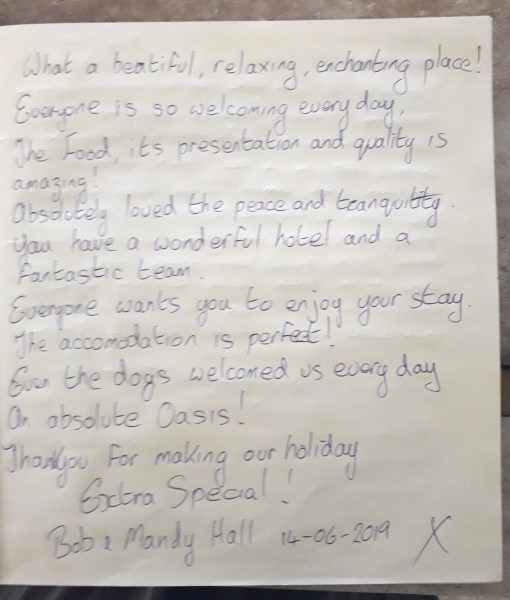 What a beatiful, relaxing, enchanting place!
Everyone is so welcoming every day,
The Food, its presentation and quality is
amazing!
Absolutely loved the peace and tranquility.
You have a wonderful hotel and a
fantastic team.
Everyone wants you to enjoy your stay.
The accomodation is perfect!
Even the dogs welcomed us every day
An absolute Oasis!
Thankyou For making our holiday
Extra Special!
Bob & Mandy Hall 14-06-2019 X